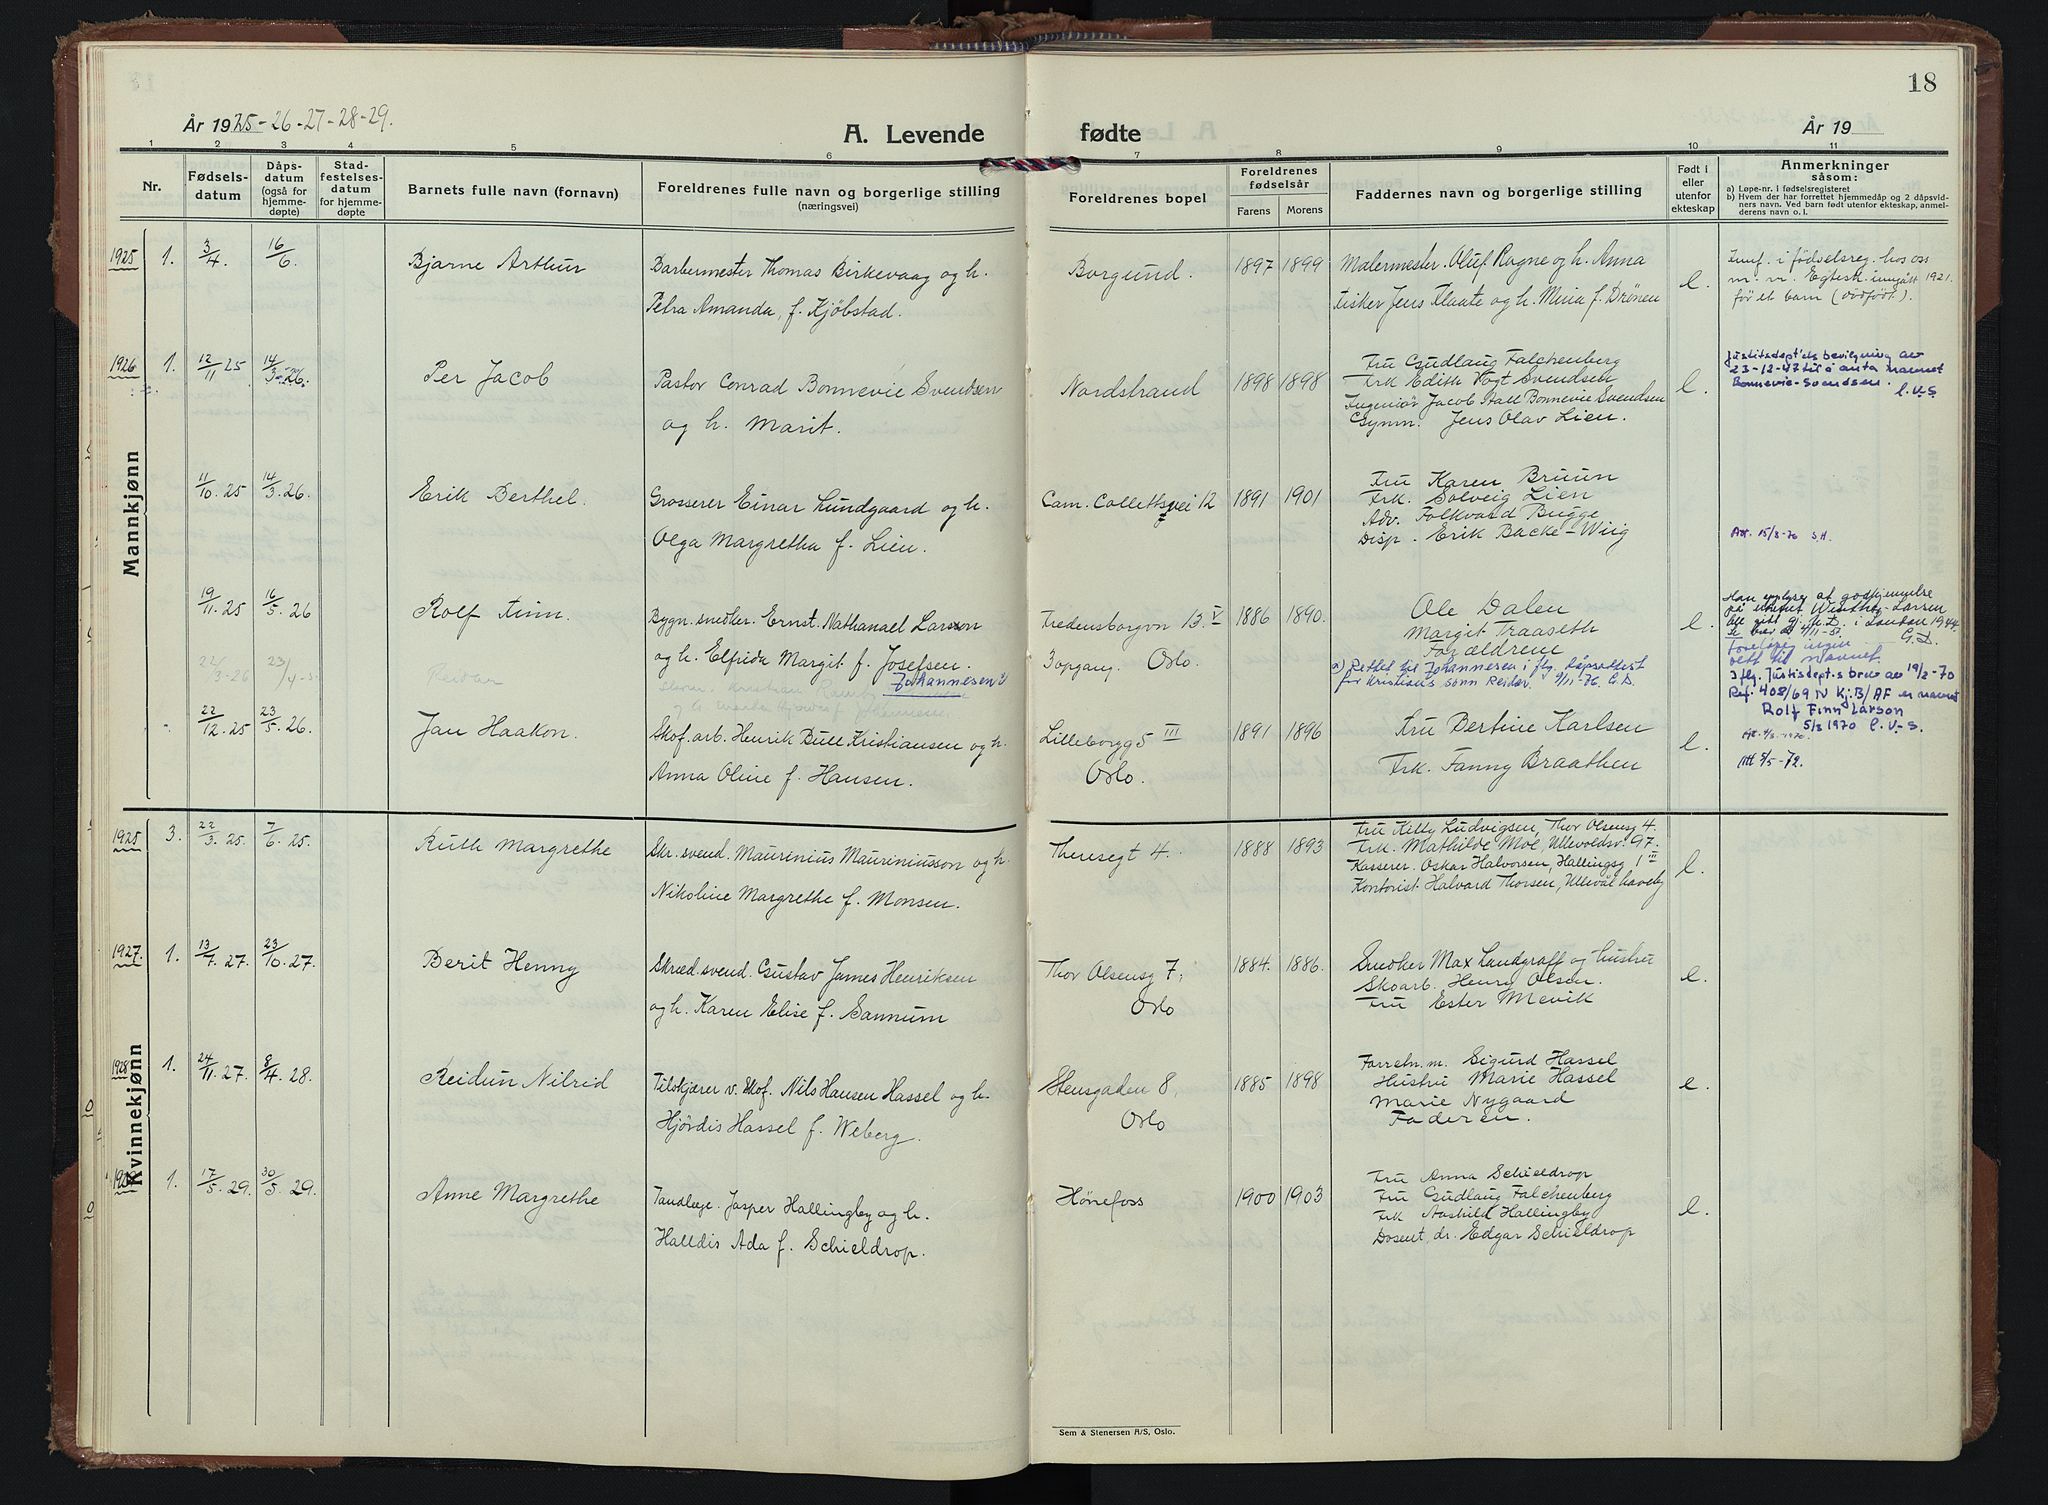 18
År 1925-26-27-28-29.
A. Levende fødte
År 19
1 2 3 4 5 6 7 8 9 10 11
Nr.
Fødselsdatum
Dåpsdatum (også for hjemmedøpte)
Stadfestelsesdatum for hjemmedøpte
Barnets fulle navn (fornavn)
Foreldrenes fulle navn og borgerlige stilling
(næringsvei)
Foreldrenes bopel
Foreldrenes fødselsår
Farens Morens
Faddernes navn og borgerlige stilling
Født i eller utenfor ekteskap
Anmerkninger såsom:
a) Løpe-nr. i fødselsregisteret
b) Hvem der har forrettet hjemmedåp og 2 dåpsvidners navn. Ved barn født utenfor ekteskap, anmelderens navn o. l.
Mannkjønn
1925 1. 3/4. 16/6. Bjarne Arthur
Barbermester Thomas Birkevaag og h.
Petra Amanda, f. Kjöbstad.
Borgund. 1897 1899
Malermester. Oluf Rogne og h. Anna
Fisker Jens Flaate og h. Mina f. Drönen
e.
i fødselsreg. hos oss
m. m. Egtesk. inngått 1921.
før et barn (dødfødt).
1926 1. 12/11 25 14/3-26. Per Jacob
Pastor Conrad Bonnevie Svendsen
og h. Marit.
Nordstrand 1898 1898
Fru Gudlaug Falchenberg
Frk Edith Vogt Svendsen
Ingeniör Jacob Stall Bonnevie Svendsen
Gymn. Jens Olav Lien.
e.
Justitsdept'ets bevilgning av
23-12-47 til å anta navnet
Bonnevie-Svendsen.
C.V.S
11/10. 25 14/3. 26. Erik Berthel.
Grosserer Einar Lundgaard og h.
Olga Margretha f. Lien.
Cam. Collettsvei 12 1891 1901
Fru Karen Bruun
Frk. Solveig Lien
Adv. Folkvard Bugge
Disp. Erik Backe-Wiig
Att. 15/3-76 S.H.
19/11. 25 16/5. 26 Rolf Finn.
Bygn. snedker. Ernst. Nathanael Larsson
og h. Elfrida Margit f. Josefsen.
Fredensborgvn 13. V
3 opgang. Oslo.
1886 1890.
Ole Dalen
Margit Traaseth
Forældrene
e.
Han opplyser at godkjennelse
på navnet Larson
ble gitt i London 1944
G.D.
foreløpig ingen
rett til navnet.
Iflg. Justisdept.s brev av 19/2-70
Ref. 408/69 N Kj.B/AF er navnet
Rolf Finn Larson
5/3 1970 C.V.S.
22/3-26 23/4- Reidar
Johannesen a)
a) Rettet til Johannesen iflg. dåpsattest
for Kristians sönn Reidar. 9/11-76. G.D.
22/12. 25 23/5. 26. Jan Haakon.
Skof. arb. Henrik Bull Kristiansen og h.
Anna Oline f. Hansen.
Lilleborgg 5 III
Oslo.
1891 1896
Fru Bertine Karlsen
Frk. Fanny Braathen
e.
Att 5/5-72.
Kvinnekjønn
1925 3. 22/3. 25 7/6. 25. Ruth Margrethe
Skr. svend. Maurinius Mauriniusson og h.
Nikoline Margrethe f. Monsen.
Theresegt 4. 1888 1893
Fru Kitty Ludvigsen, Thor Olsensg 4.
Frk. Mathilde Moe, Ullevoldsv. 97.
Kasserer. Oskar Halvorsen, Hallingsg 1 III
Kontorist. Halvard Thorsen, Ullevål haveby
e.
1927. 1. 13/7. 27. 23/10. 27. Berit Henny
Skræd. svend. Gustav James Henriksen
og h. Karen Elise f. Sannum
Thor Olsensg 7,
Oslo
1884. 1886.
Snedker Max Landgraff og hustru
Skoarb. Henry Olsen.
Fru Ester Mevik
e.
1928 1. 24/11. 27. 8/4. 28. Reidun Nilrid
Tilskjærer v. Skof. Nils Hansen Hassel og h.
Hjördis Hassel f. Weberg.
Stensgaden 8,
Oslo
1885 1898
Forretn. m. Sigurd Hassel
Hustru Marie Hassel
Marie Nygaard
Faderen.
e
1929 1. 17/5. 29. 30/5. 29. Anne Margrethe
Tandlæge. Jasper Hallingby og h.
Halldis Ada f. Schieldrop.
Hönefoss 1900 1903
Fru Anna Schieldrop
Fru Gudlaug Falchenberg
Frk Aashild Hallingby
Dosent, dr. Edgar Schieldrop
e.
Sem & Stenersen A/S, Oslo.